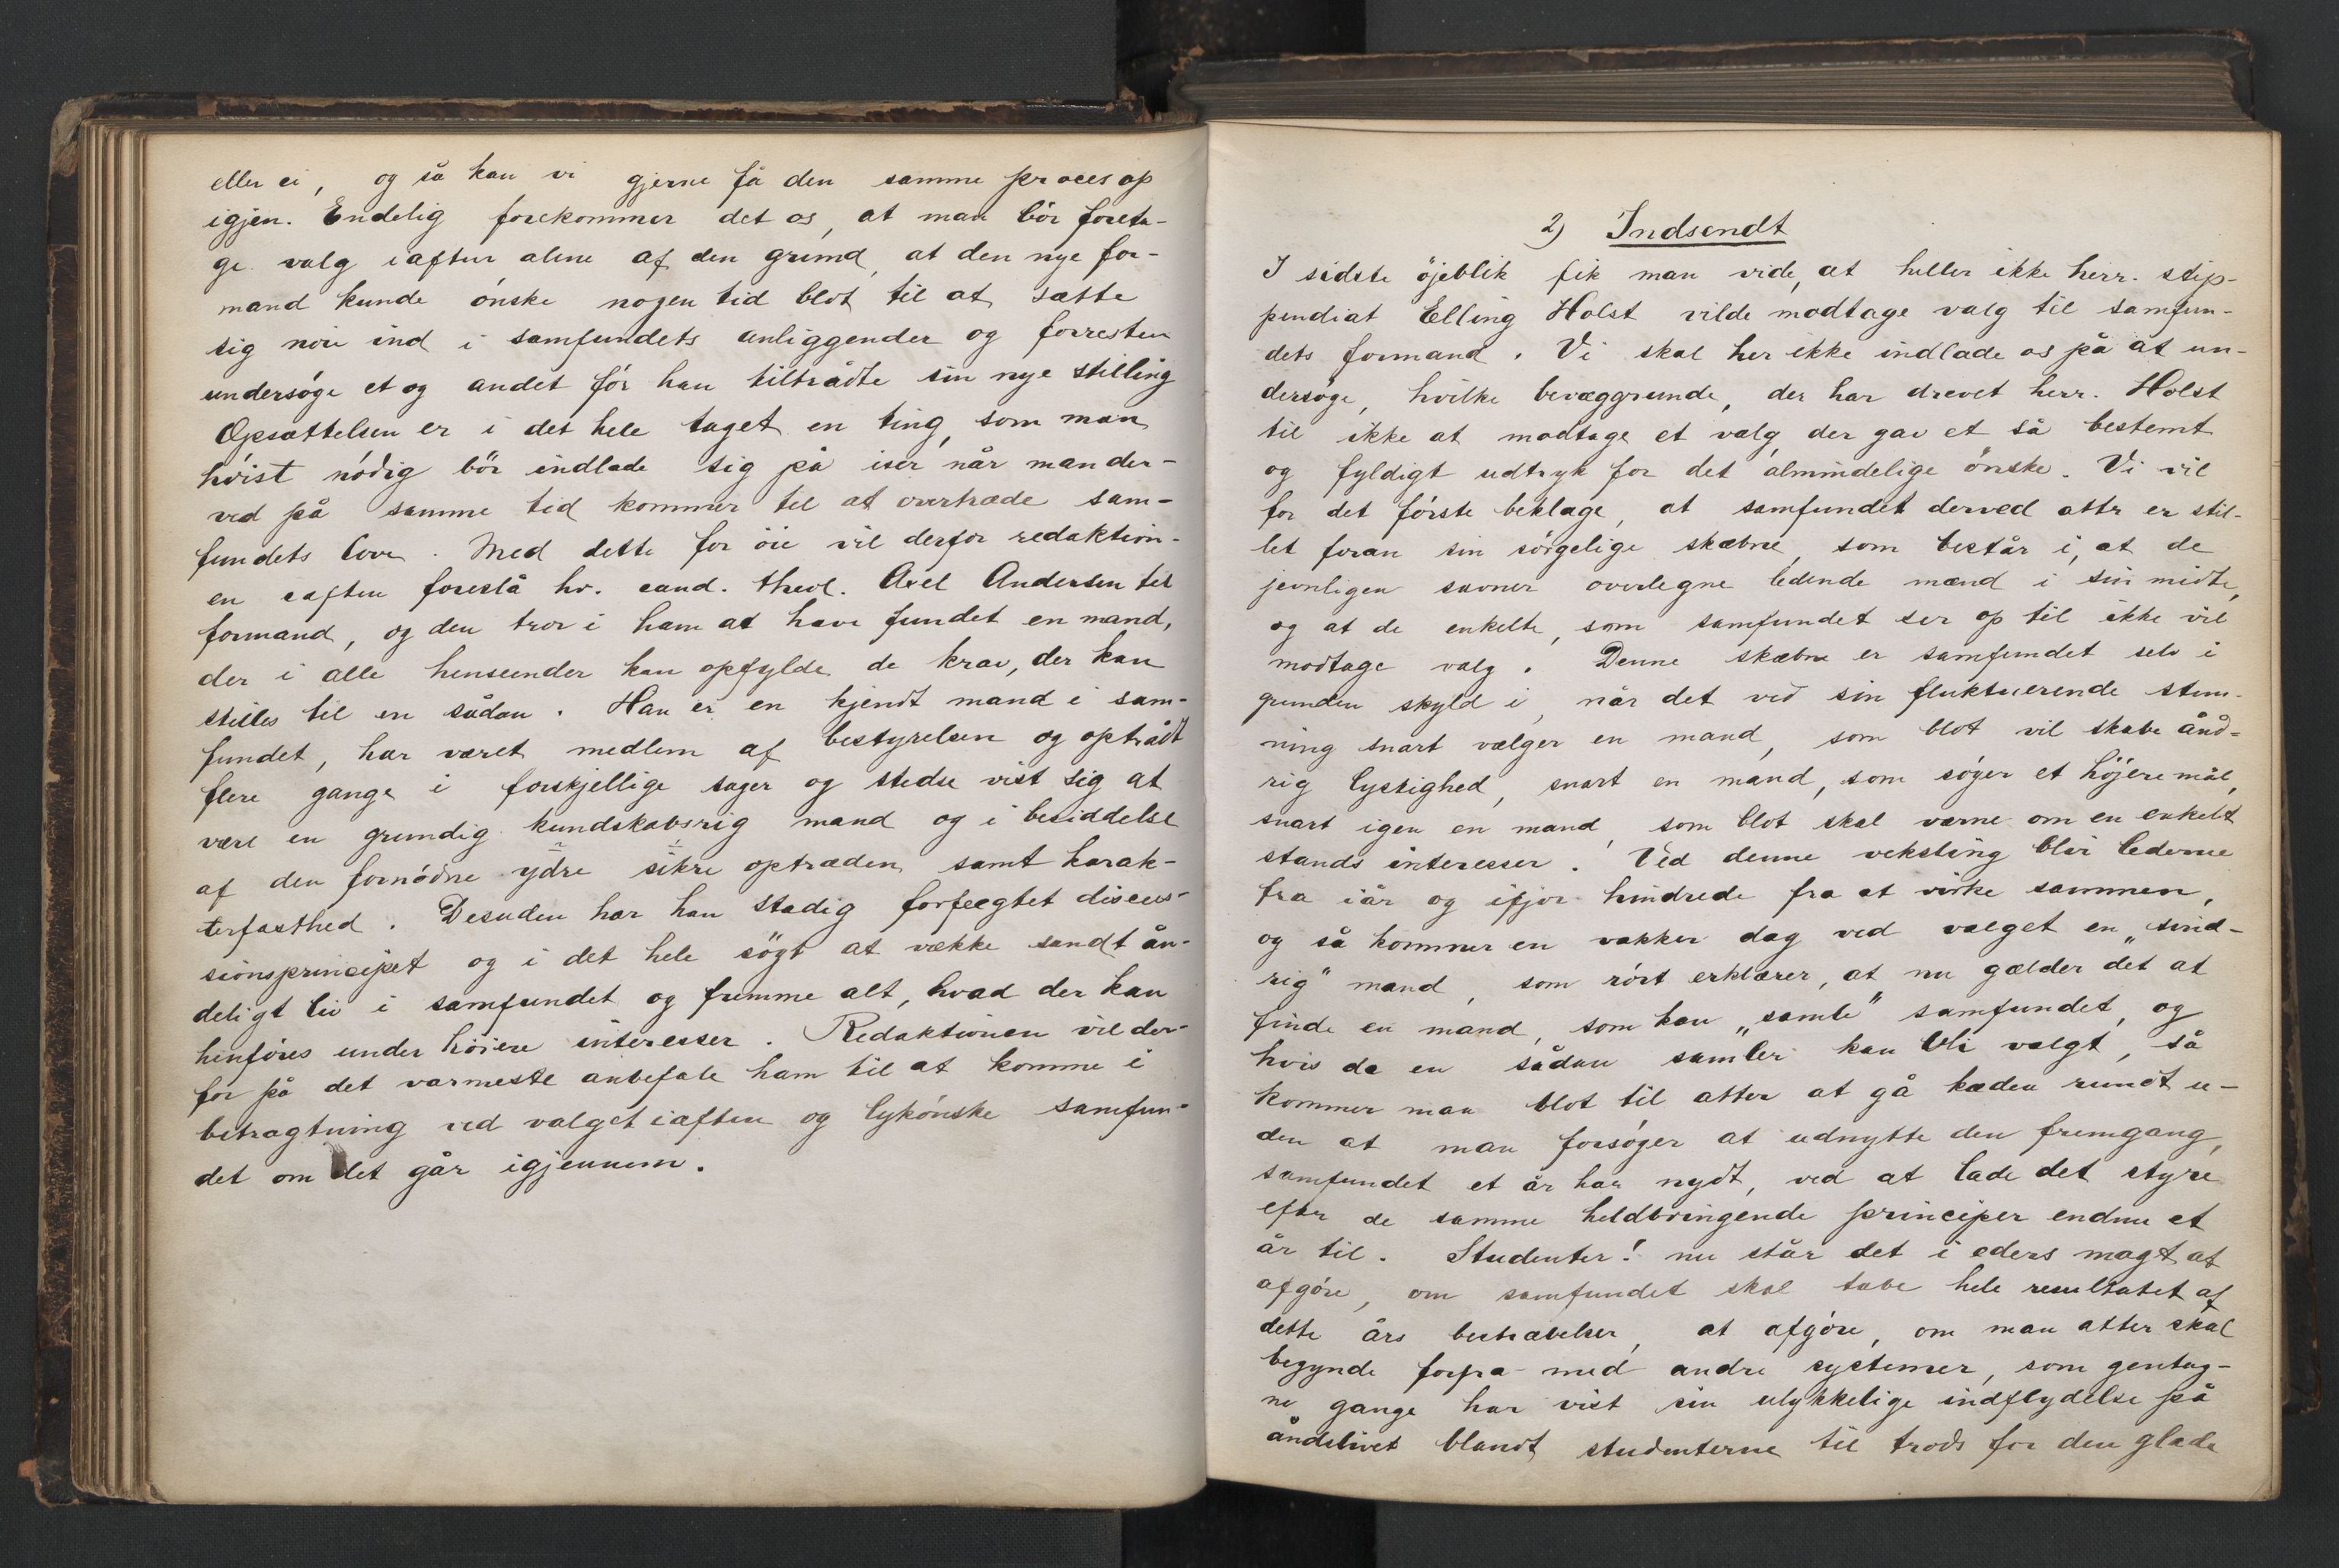 eller ei, og så kan vi gjerne få den samme proces op
igjen. Endelig forekommer det os, at man bör foreta-
ge valg iaften alene af den grund, at den nye for-
mand kunde önske nogen tid blot til at sætte
sig nöie ind i samfundets anliggender og forresten
undersöge et og andet för han tiltrådte sin nye stilling
Opsættelsen er i det hele taget en ting, som man
höist nödig bör indlade sig på især når man der-
ved på samme tid kommer til at overtræde sam-
fundets love. Med dette for öie vil derfor redaktion-
en iaften foreslå hr. cand. theol. Axel Andersen til
formand, og den tror i ham at have fundet en mand,
der i alle henseender kan opfylde de krav, der kan
stilles til en sådan. Han er en kjendt mand i sam-
fundet, har været medlem af bestyrelsen og optrådt
flere gange i forskjellige sager og stedse vist sig at
være en grundig kundskabsrig mand og i besiddelse
af den fornödne ydre sikre optræden samt karak-
terfasthed. Desuden har han stadig forfægtet discus-
sionsprincipet og i det hele sögt at vække sandt ån-
deligt liv i samfundet og fremme alt, hvad der kan
henföres under höiere interesser. Redaktionen vil der-
for på det varmeste anbefale ham til at komme i
betragtning ved valget iaften og lykönske samfun-
det om det går igjennem.
2) Indsendt
I sidste öjeblik fik man vide, at heller ikke herr. stip-
pendiat Elling Holst vilde modtage valg til samfun-
dets formand. Vi skal her ikke indlade os på at un-
dersöge, hvilke bevæggrunde, der har drevet herr. Holst
til ikke at modtage et valg, der gav et så bestemt
og fyldigt udtryk for det almindelige önske. Vi vil
for det förste beklage, at samfundet derved atter er stil-
let foran sin sörgelige skæbne, som består i, at de
jevnligen savner overlegne ledende mænd i sin midte,
og at de enkelte, som samfundet ser op til ikke vil
modtage valg. Denne skæbne er samfundet selv i
grunden skyld i, når det ved sin fluktuerende stem-
ning snart vælger en mand, som blot vil skabe ånd-
rig lystighed, snart en mand, som söger et höjere mål,
snart igen en mand, som blot skal værne om en enkelt
stands interesser. Ved denne veksling blir lederne
fra iår og ifjor hindrede fra at virke sammen,
og så kommer en vakker dag ved valget en „sind-
rig" mand, som rört erklærer, at nu gælder det at
finde en mand, som kan „samle" samfundet, og
hvis da en sådan samler kan bli valgt, så
kommer man blot til atter at gå kæden rundt u-
den at man forsöger at udnytte den fremgang,
samfundet et år har nydt, ved at lade det styre
efter de samme heldbringende principer endnu et
år til. Studenter! nu står det i eders magt at
afgöre, om samfundet skal tabe hele resultatet af
dette års bestræbelser, at afgöre, om man atter skal
begynde forfra med andre systemer, som gentag-
ne gange har vist sin ulykkelige indflydelse på
åndslivet blandt studenterne til trods for den glade